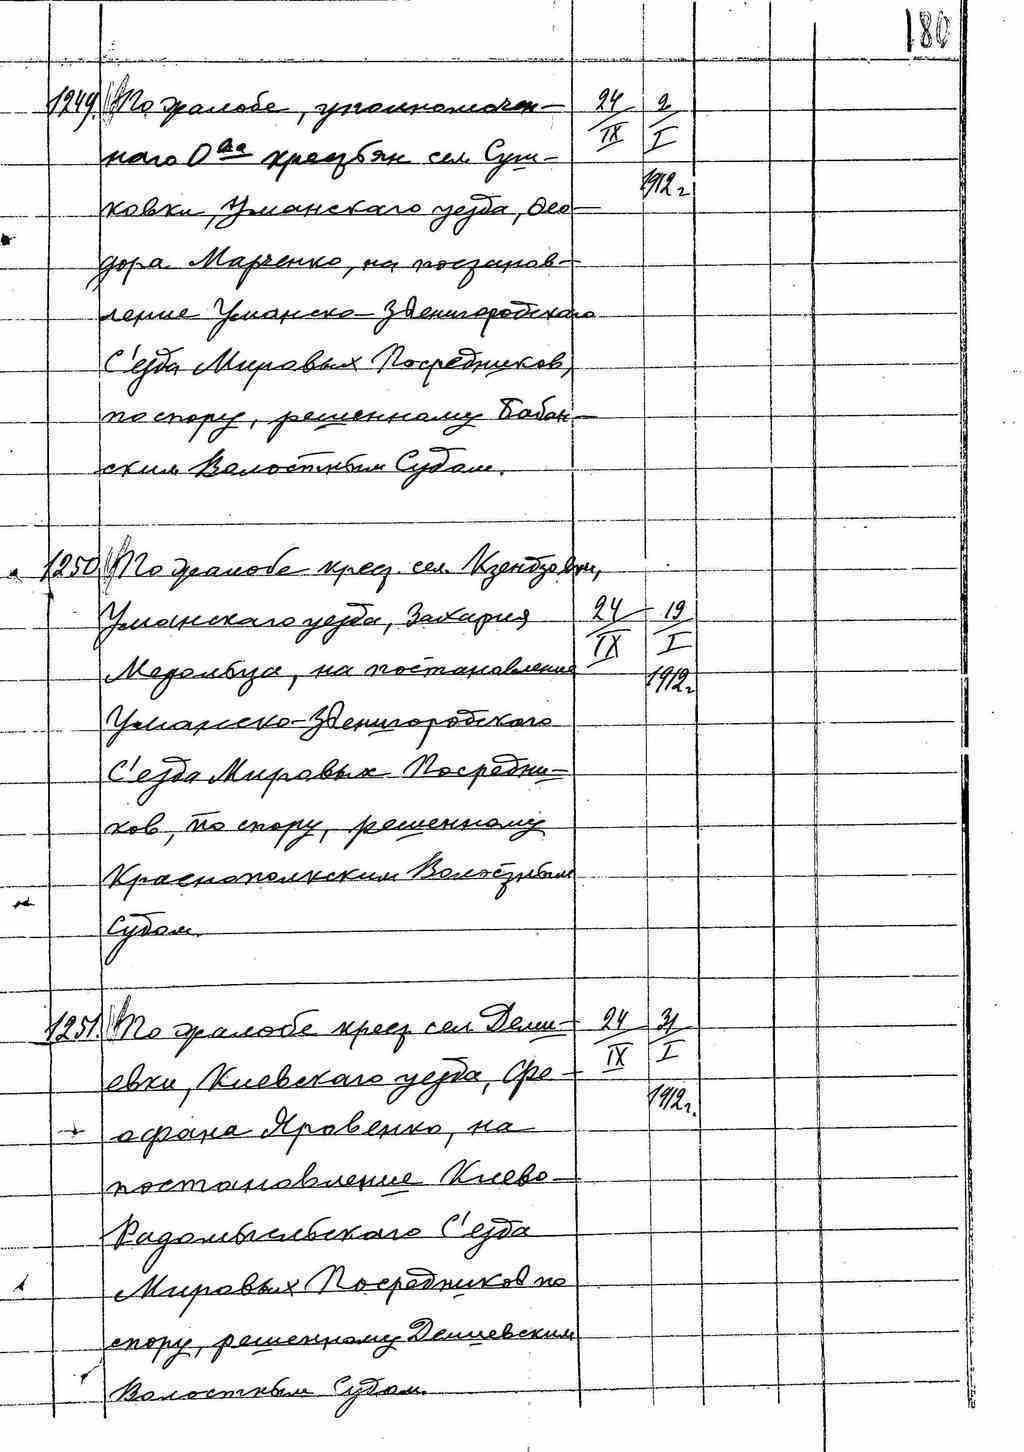 180
1249. По жалобе, уполномочен- 24/IX 2/I 1912 г
наго О-ва крестьян сел. Суш-
ковки, Уманскаго уезда, Фео-
дора Марченко, на постанов-
ление Уманско-Звенигородскаго
С'езда Мировых Посредников,
по спору, решенному Бабан-
ским Волостным Судом.
1250. По жалобе крест. сел. Кзендзовки,
Уманскаго уезда, Захария 24/IX 19/I 1912 г
на постановление
Уманско-Звенигородского
С'езда Мировых Посредни-
ков, по спору, решенному
Краснополкским Волостным
Судом.
1251. По жалобе крест сел. Деми- 24/IX 31/I 1912 г.
евки, Киевскаго уезда, Фе-
офана Яровенко, на
постановление Киево-
Радомысльскаго С'езда
Мировых Посредников по
спору, решенному Демиевским
Волостным Судом.